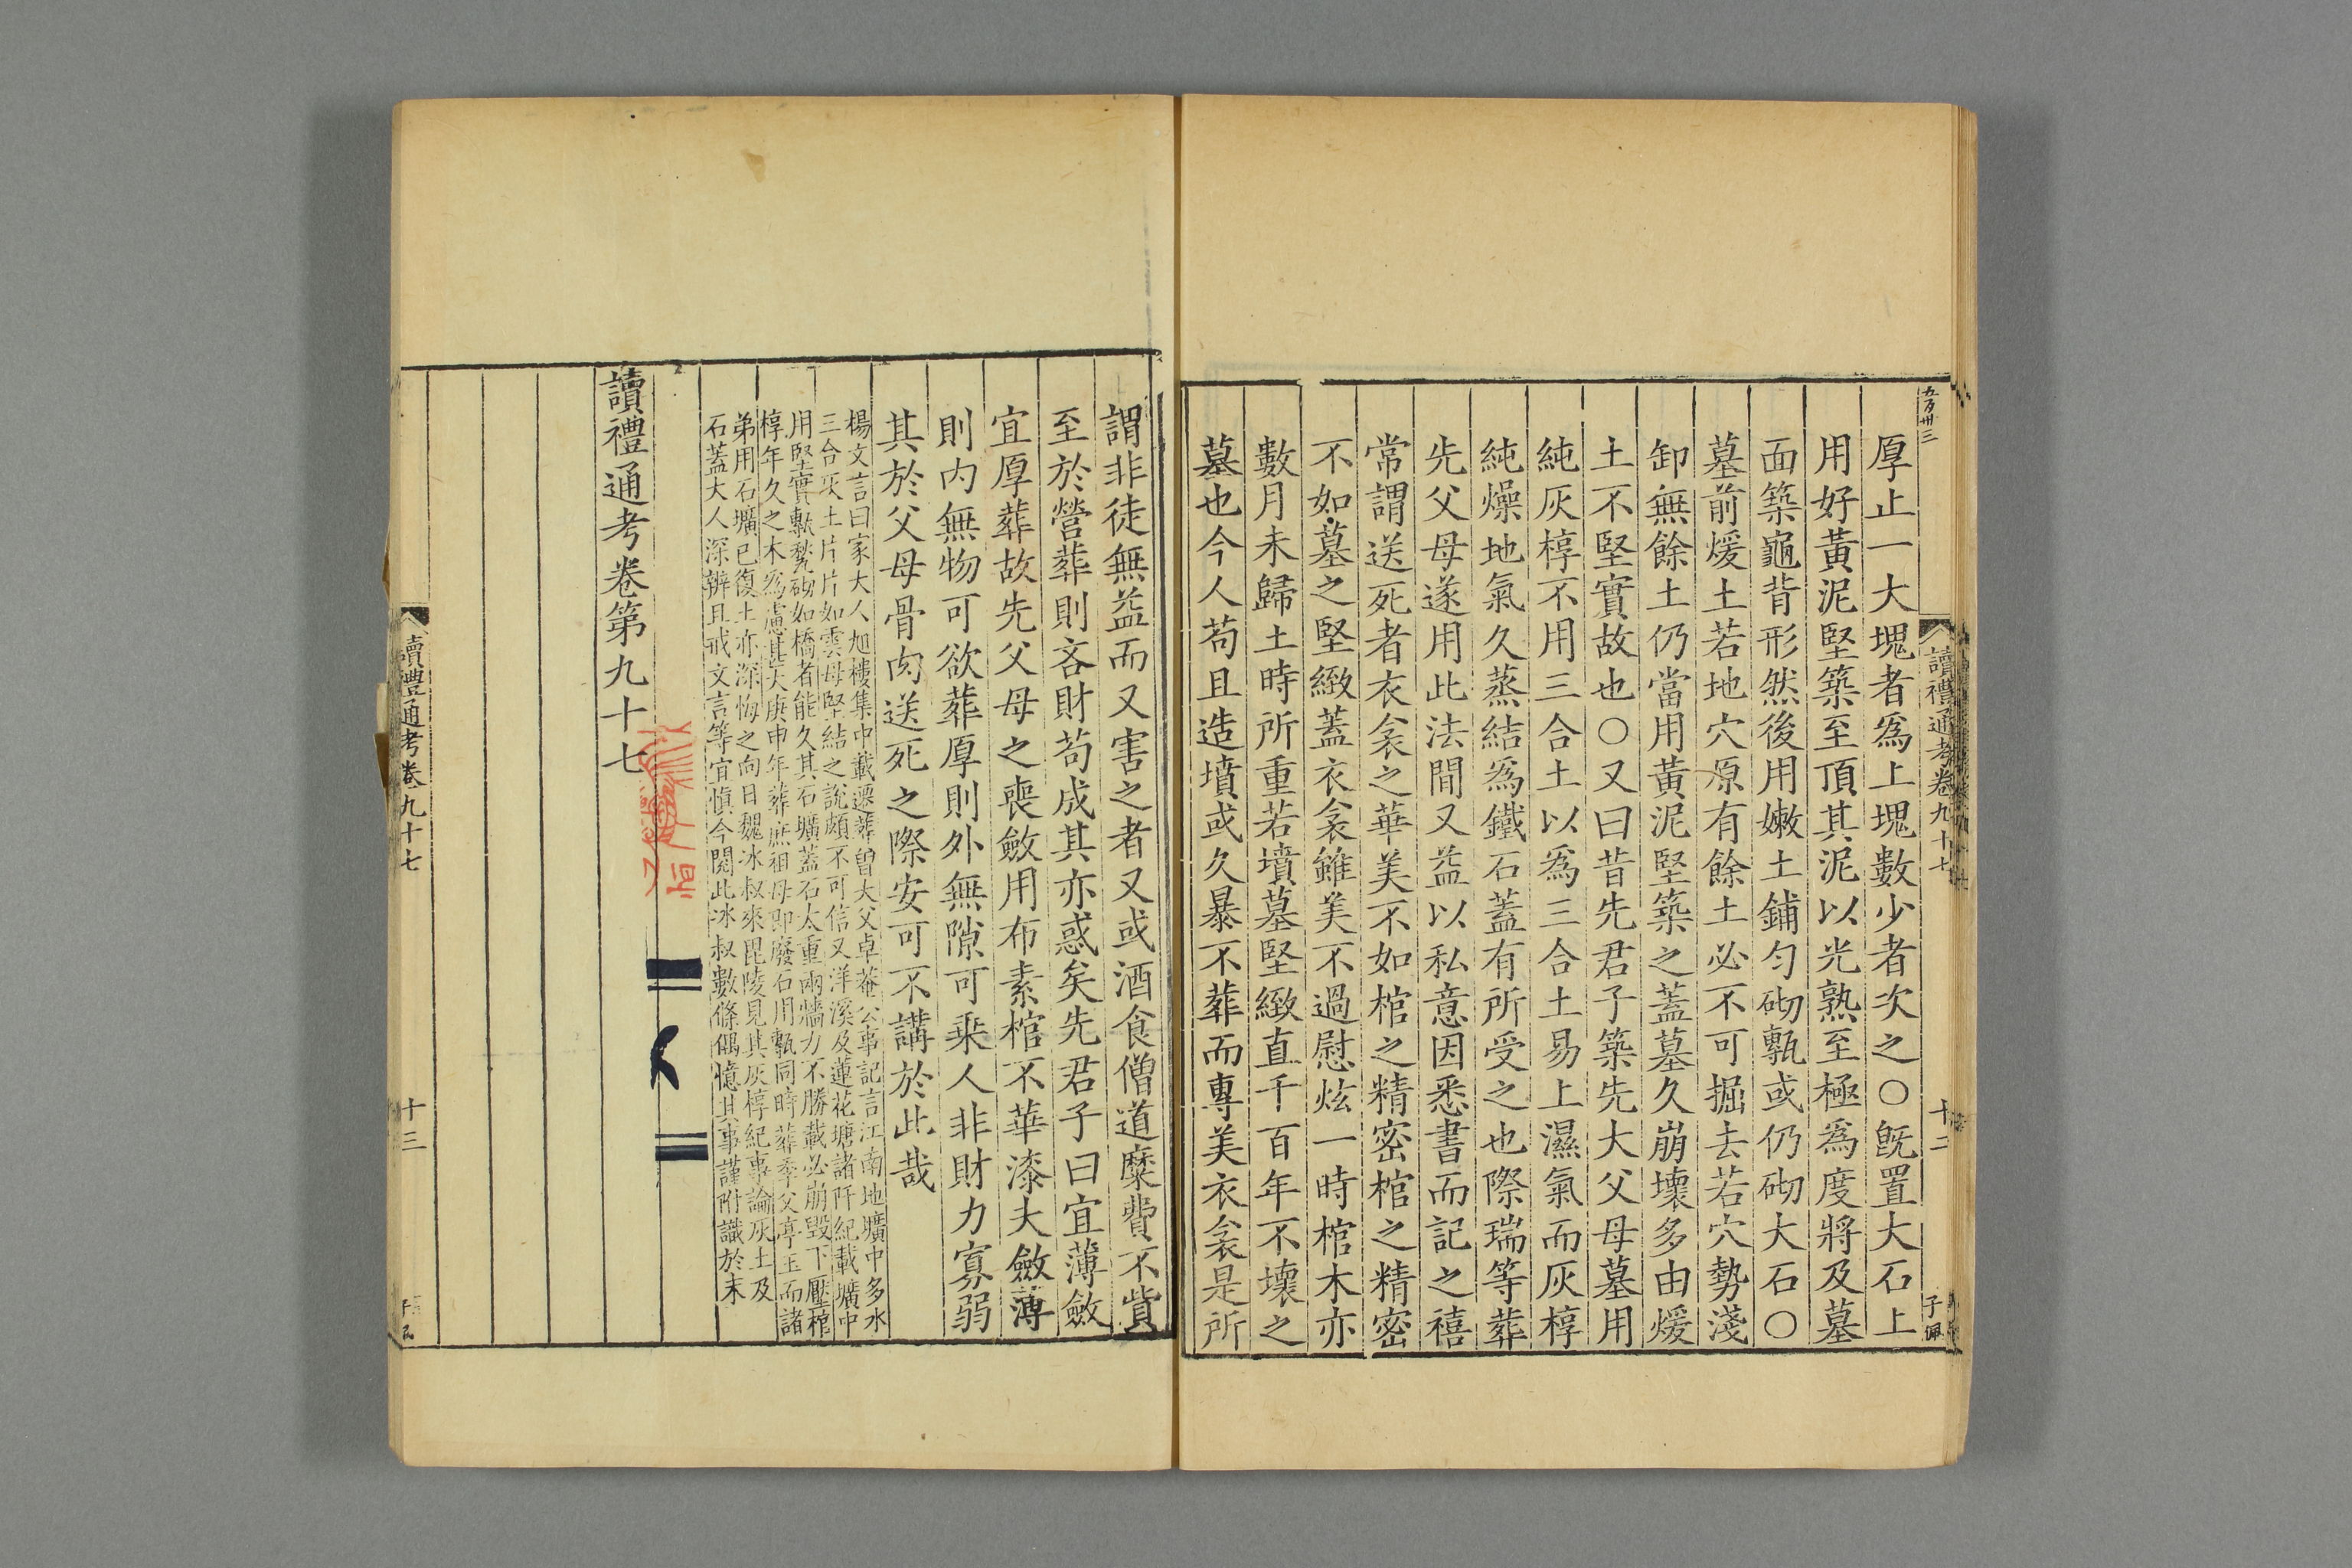 五百卅三
讀禮通考卷九十七
十二
子佩
厚止一大塊者爲上塊數少者次之○旣置大石上
用好黃泥堅築至頂其泥以光熟至極爲度將及墓
面築龜背形然後用嫩土鋪勻砌甎或仍砌大石○
墓前煖土若地穴原有餘土必不可掘去若穴勢淺
卸無餘土仍當用黃泥堅築之蓋墓久崩壞多由煖
土不堅實故也○又曰昔先君子築先大父母墓用
純灰椁不用三合土以爲三合土易上濕氣而灰椁
純燥地氣久蒸結爲鐵石蓋有所受之也際瑞等葬
先父母遂用此法間又益以私意因悉書而記之禧
常謂送死者衣衾之華美不如棺之精密棺之精密
不如墓之堅緻蓋衣衾雖美不過慰炫一時棺木亦
數月未歸土時所重若墳墓堅緻直千百年不壞之
墓也今人苟且造墳或久暴不葬而專美衣衾是所
謂非徒無益而又害之者又或酒食僧道糜費不貲
至於營葬則吝財苟成其亦惑矣先君子曰宜薄斂
宜厚葬故先父母之喪斂用布素棺不華漆夫斂薄
則内無物可欲葬厚則外無隙可乘人非財力寡弱
其於父母骨肉送死之際安可不講於此哉
楊文言曰家大人旭樓集中載遷葬曾大父卓菴公事記言江南地壙中多水
三合灰土片片如雲母堅結之說頗不可信又洋溪及蓮花塘諸阡紀載壙中
用堅實甎甃砌如橋者能久其石壙蓋石太重兩牆力不勝載必崩毁下壓棺
椁年久之木爲慮甚大庚申年葬庶祖母即廢石用甎同時葬季父亭玉而諸
弟用石壙已復土亦深悔之向日魏冰叔來毘陵見其灰椁紀事論灰土及
石蓋大人深辨且戒文言等宜慎今閱此冰叔數條偶憶其事謹附識於末
讀禮通考卷第九十七
讀禮通考卷九十七
十三